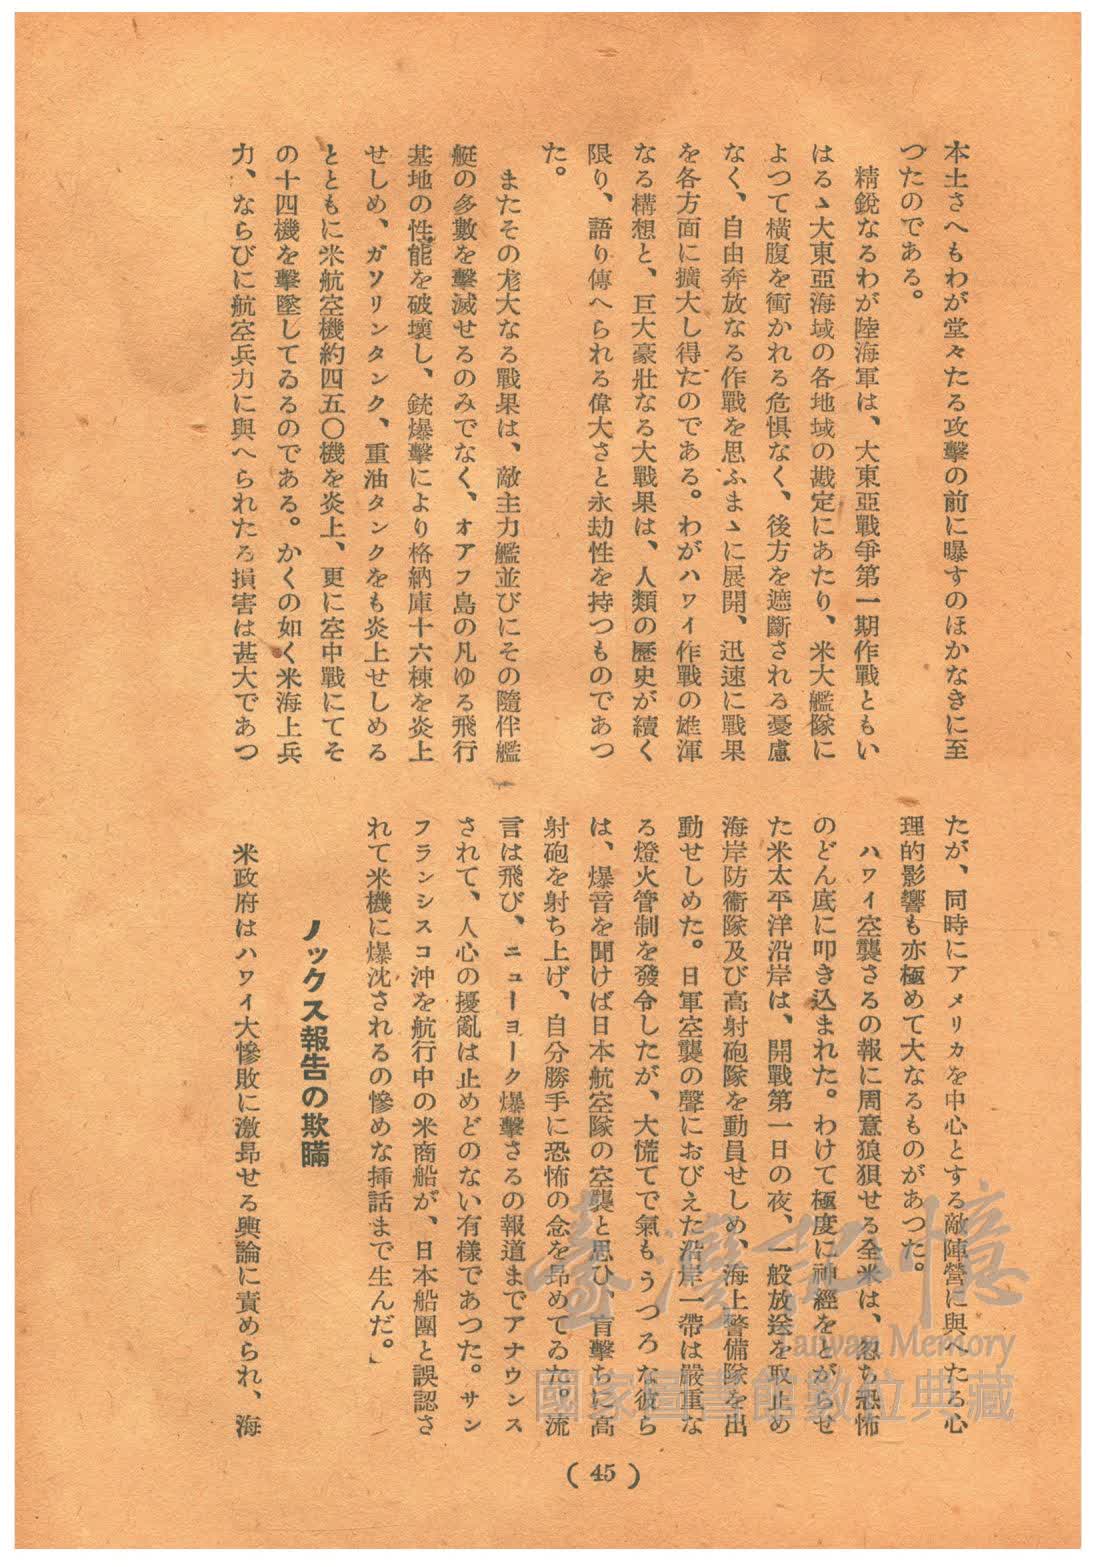 本土さへもわが堂々たる攻擊の前に曝すのほかなきに至
つたのである。
精鋭なるわが陸海軍は、大東亞戰爭第一期作戰ともい
はるゝ大東亞海域の各地域の戡定にあたり、米大艦隊に
よつて橫腹を衝かれる危惧なく、後方を遮斷される憂慮
なく、自由奔放なる作戰を思ふまゝに展開、迅速に戰果
を各方面に擴大し得たのである。わがハワイ作戰の雄渾
なる構想と、巨大豪壯なる大戰果は、人類の歷史が續く
限り、語り傳へられる偉大さと永劫性を持つものであつ
た。
またその尨大なる戰果は、敵主力艦並びにその隨伴艦
艇の多數を擊滅せるのみでなく、オアフ島の凡ゆる飛行
基地の性能を破壞し、銃爆擊により格納庫十六棟を炎上
せしめ、ガソリンタンク、重油タンクをも炎上せしめる
とともに米航空機約四五〇機を炎上、更に空中戰にてそ
の十四機を擊墜してゐるのである。かくの如く米海上兵
力、ならびに航空兵力に與へられたる損害は甚大であつ
たが、同時にアメリカを中心とする敵陣營に與へたる心
理的影響も亦極めて大なるものがあつた。
ハワイ空襲さるの報に周意狼狽せる全米は、忽ち恐怖
のどん底に叩き込まれた。わけて極度に神經をとがらせ
た米太平洋沿岸は、開戰第一日の夜、一般放送を取止め
海岸防衞隊及び高射砲隊を動員せしめ、海上警備隊を出
動せしめた。日軍空襲の聲におびえた沿岸一帶は嚴重な
る燈火管制を發令したが、大慌てで氣もうつろな彼ら
は、爆音を聞けば日本航空隊の空襲と思ひ、盲擊ちに高
射砲を射ち上げ、自分勝手に恐怖の念を昻めてゐた。流
言は飛び、ニューヨーク爆擊さるの報道までアナウンス
されて、人心の擾亂は止めどのない有樣であつた。サン
フランシスコ沖を航行中の米商船が、日本船團と誤認さ
れて米機に爆沈されるの慘めな揷話まで生んだ。」
ノックス報告の欺瞞
米政府はハワイ大慘敗に激昻せる輿論に責められ、海
(45)
臺灣記憶
Taiwan Memory
國家圖書館數位典藏